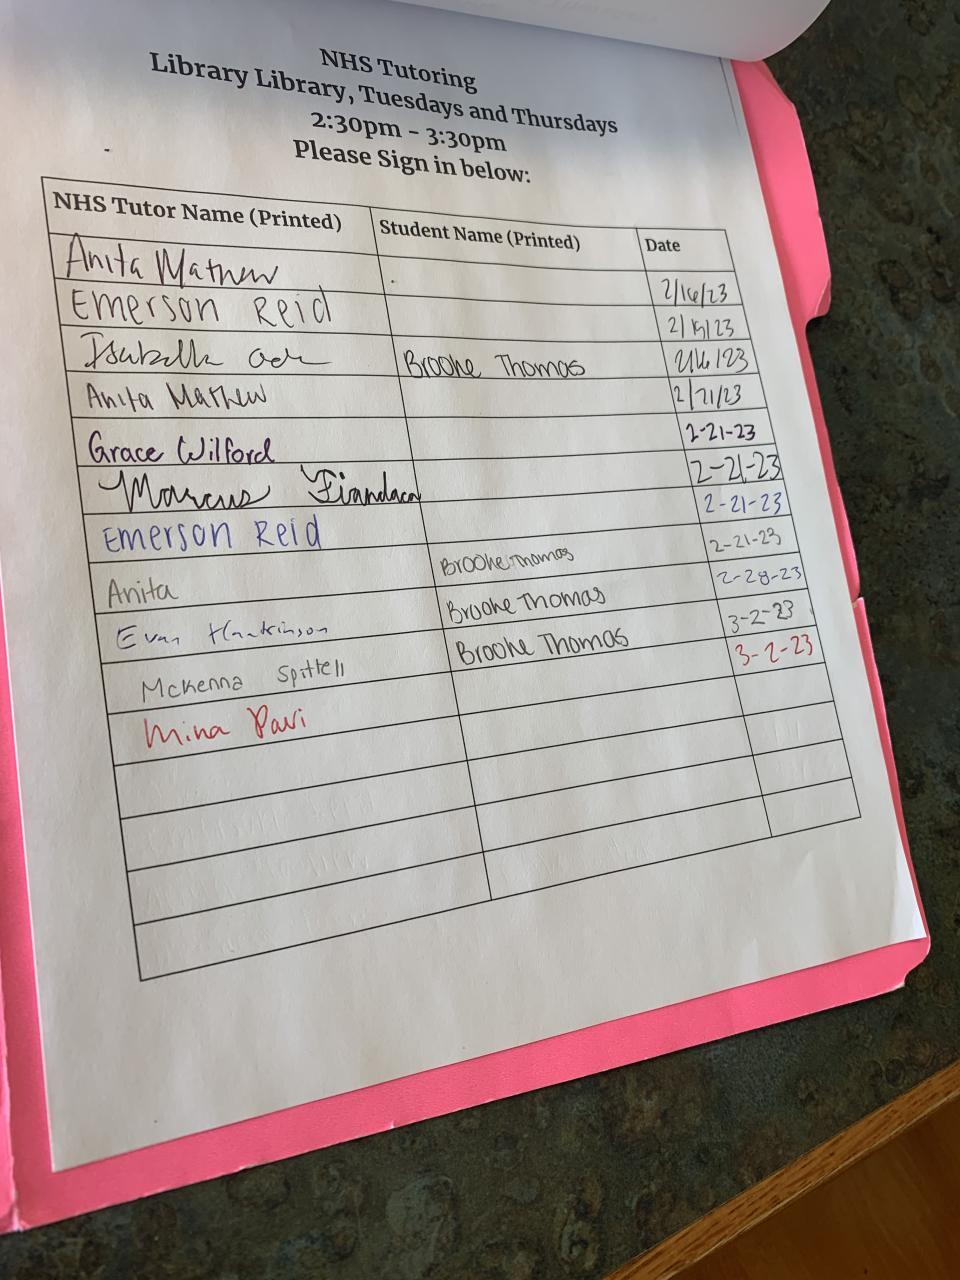 NHS Tutoring
Library Library, Tuesdays and Thursdays
2:30pm - 3:30pm
Please Sign in below:
NHS Tutor Name (Printed) Student Name (Printed) Date
Anita Mathew 2/16/23
Emerson Reid
Isabelle Brooke Thomas 2/16/23
Anita Mathew 2/21/23
Grace Wilford 2-21-23
Marcus Fiandaca 2-21-23
Emerson Reid 2-21-23
Anita Brooke Thomas 2-21-23
Evan Brooke Thomas 2-28-23
McKenna Spittell Brooke Thomas 3-2-23
Mina Pavi 3-2-23